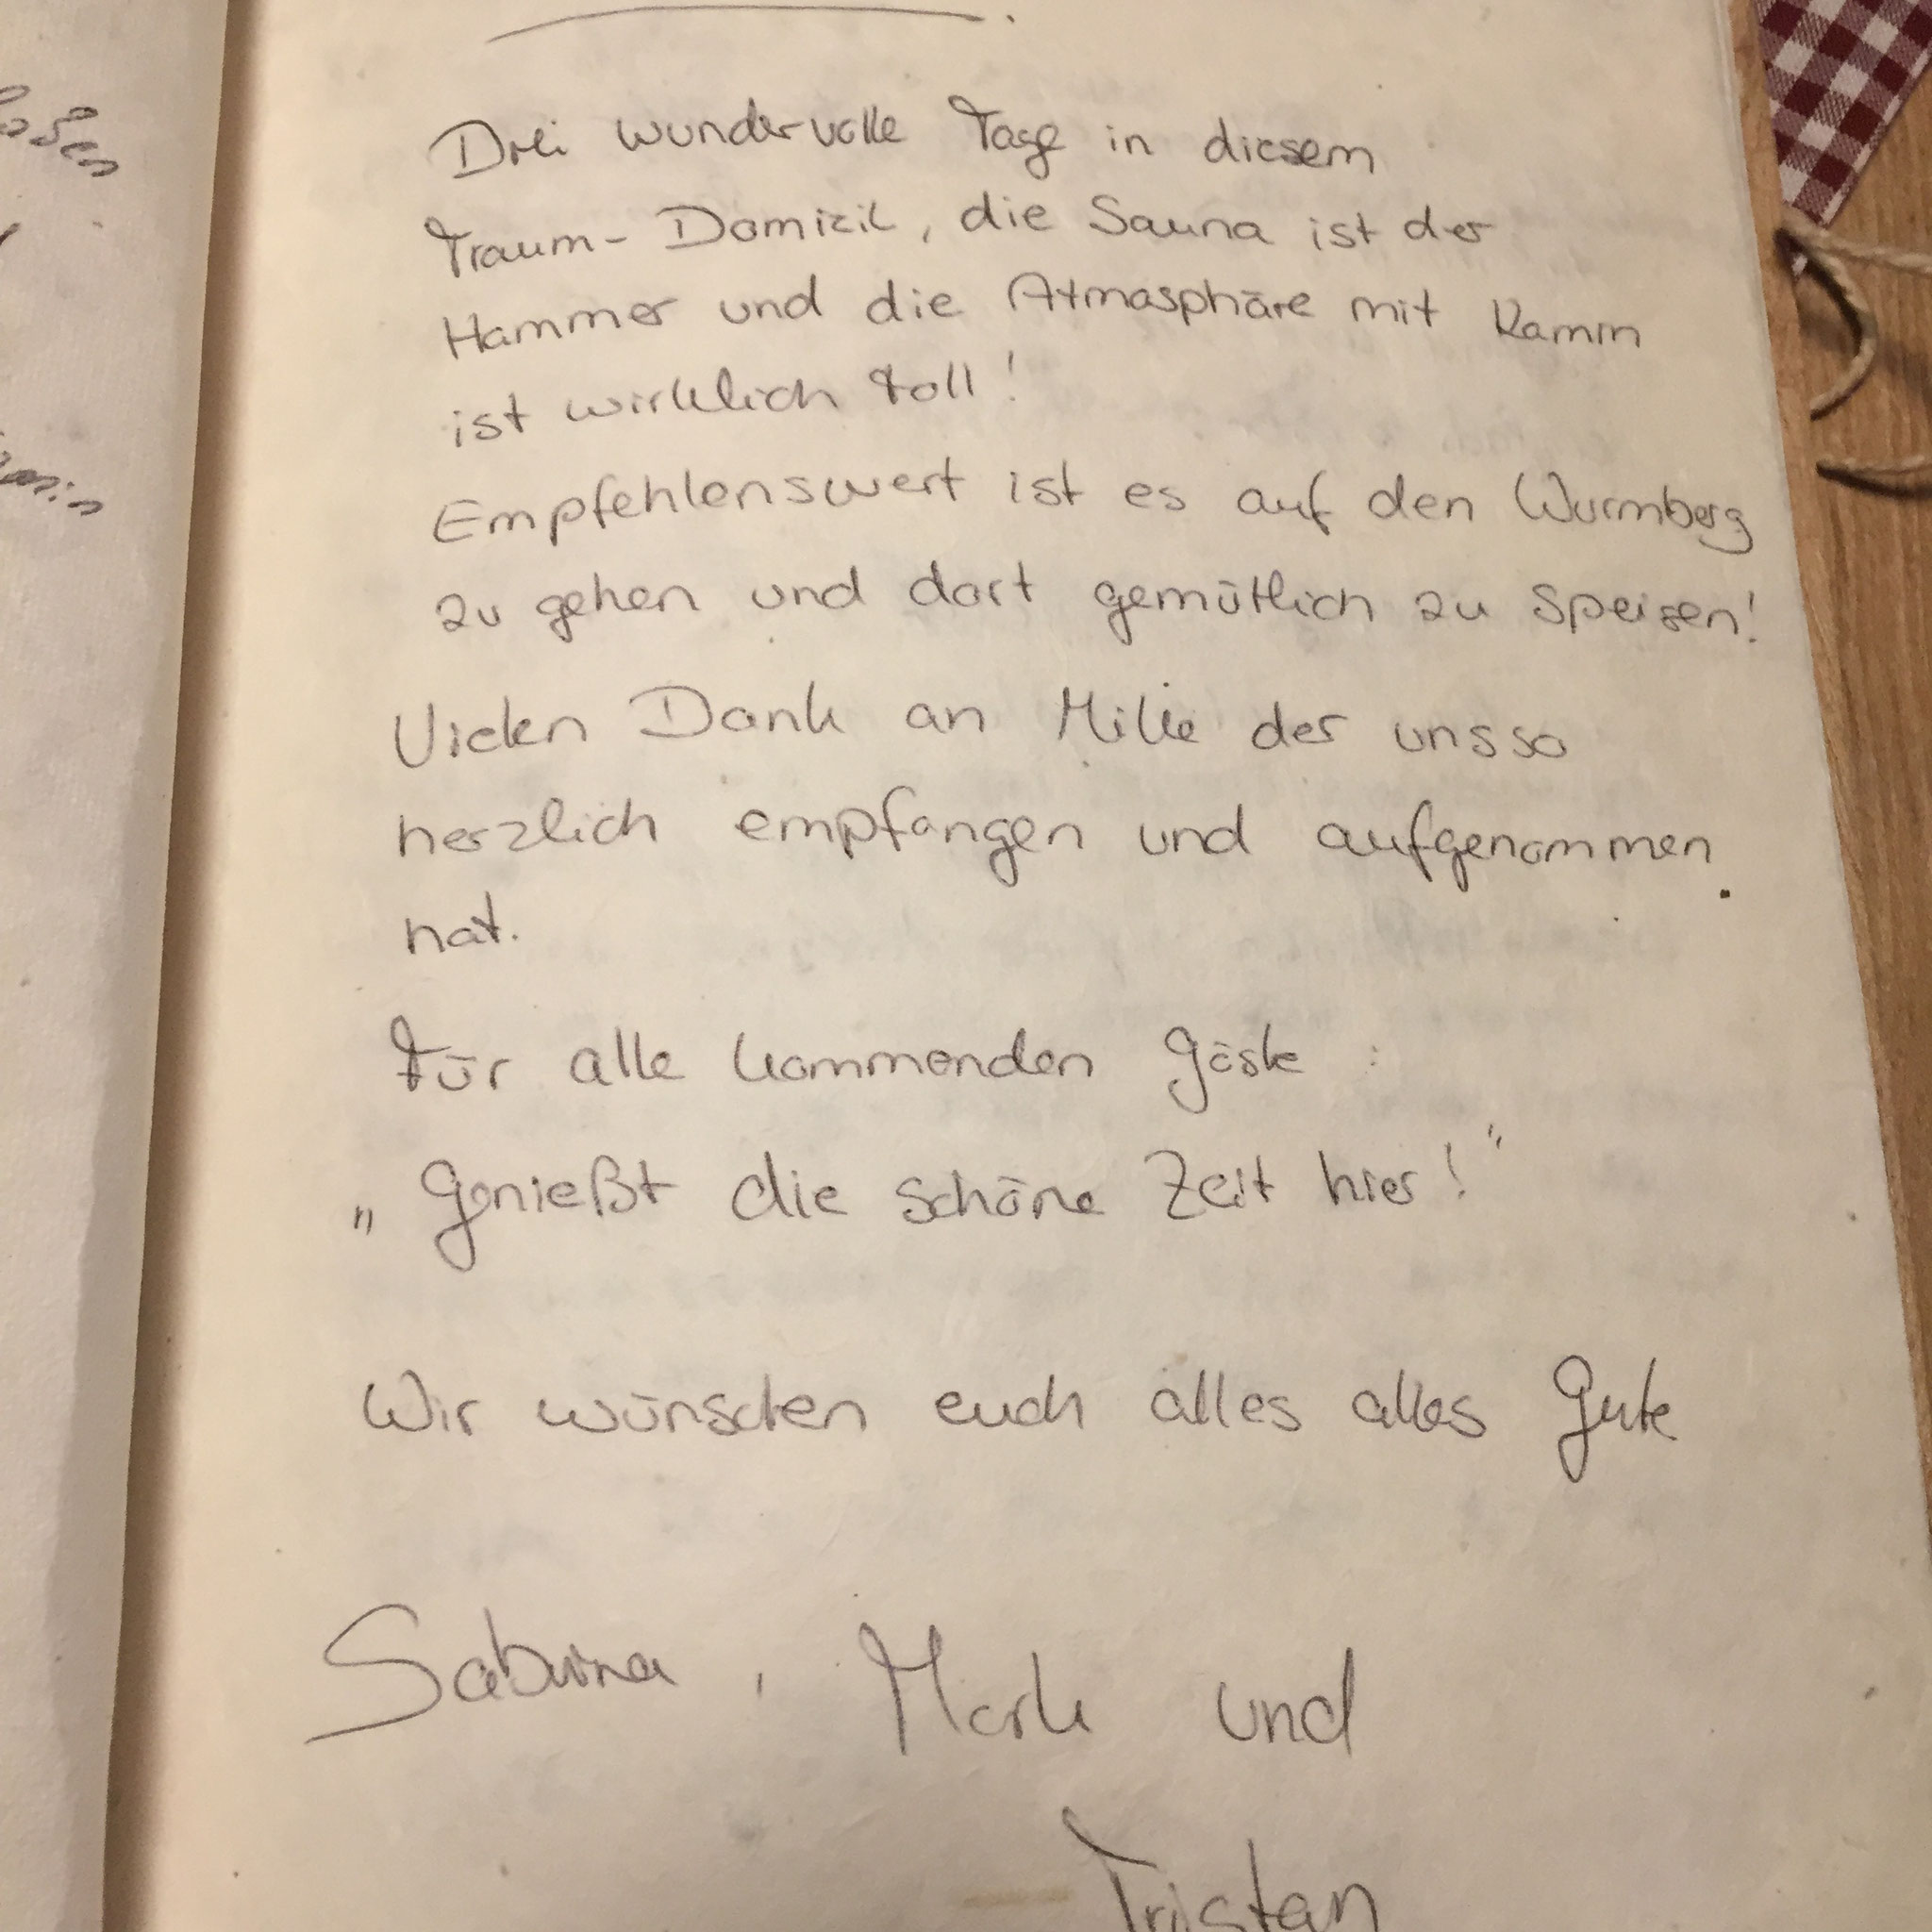 Drei wundervolle Tage in diesem
Traum-Domizil, die Sauna ist der
Hammer und die Atmosphäre mit Kamin
ist wirklich toll!
Empfehlenswert ist es auf den Wurmberg
zu gehen und dort gemütlich zu speisen!
Vielen Dank an Mike der uns so
herzlich empfangen und aufgenommen
hat.
Für alle kommenden Gäste :
„Genießt die schöne Zeit hier!"
Wir wünschen euch alles alles Gute
Sabrina, Mark und
Tristan